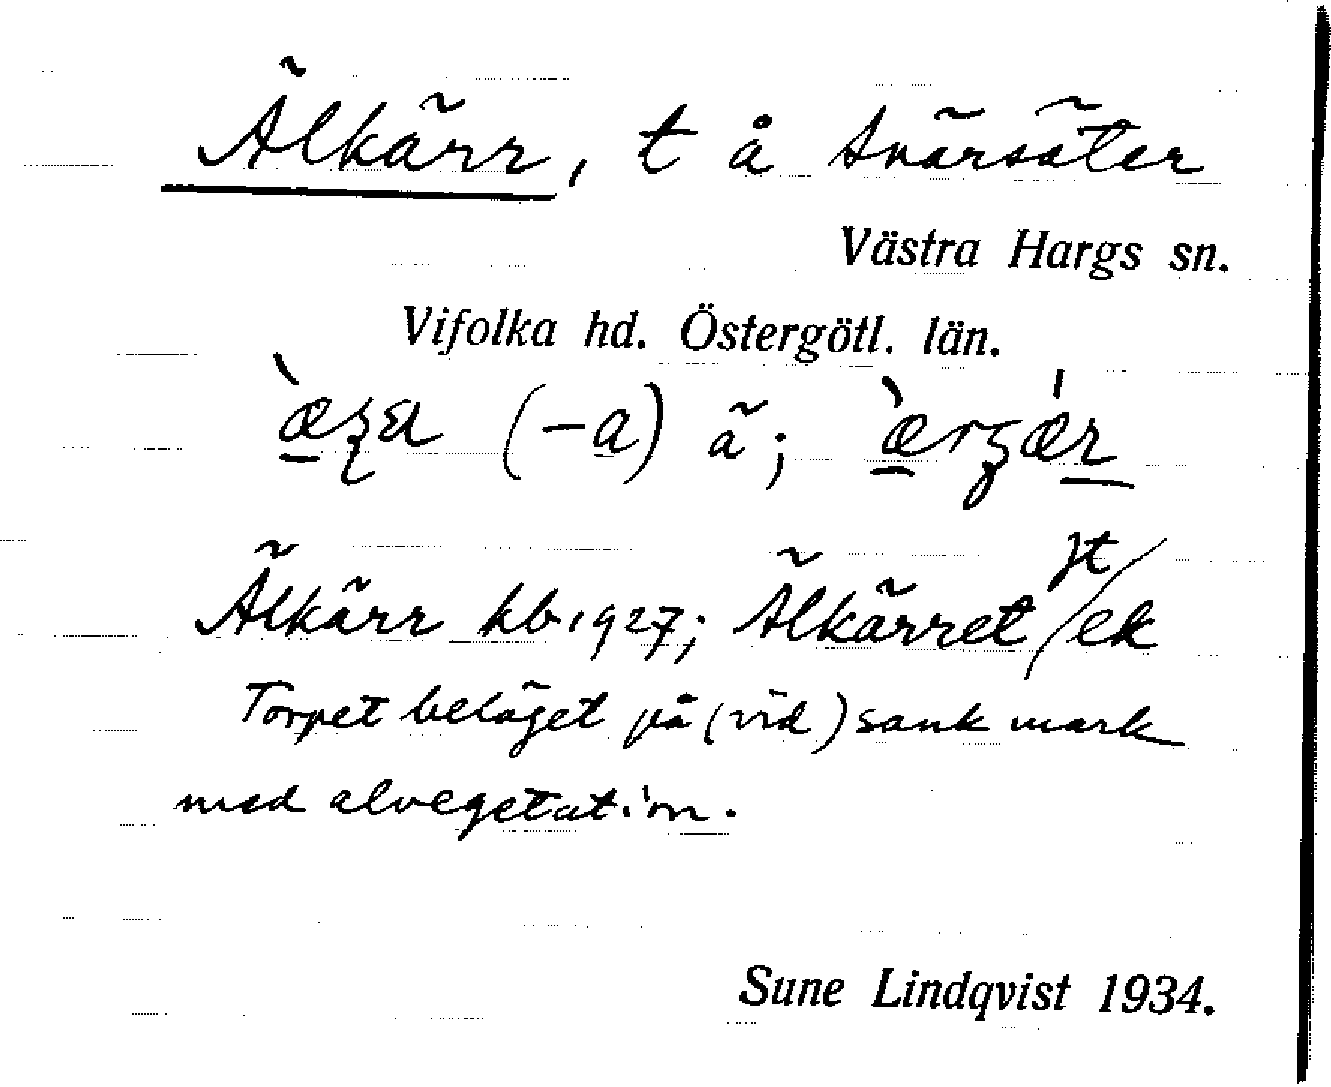 Älkärr, t å Svärsäter
Västra Hargs sn.
Vifolka hd. Östergötl. län.
(-a) ã;
Älkärr kb. 1927; Älkärret jt/ek
Torpet beläget på (vid) sank mark
med alvegetation.
Sune Lindqvist 1934.